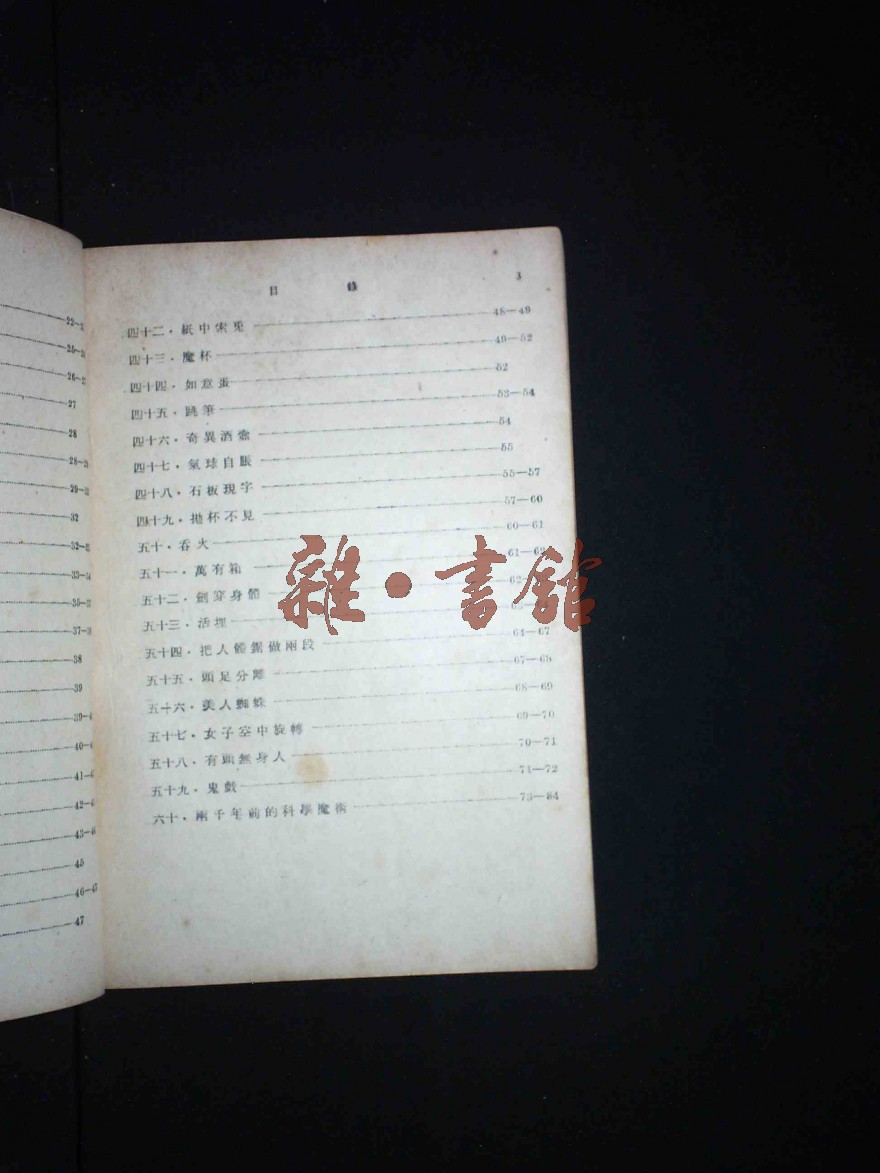 22-
25-
26-2
27
28
28-2
29-3
32
32-3
33-3
35-3
37-3
38
39
39-4
40-4
41-4
42-4
43-4
45
46-47
47
目 錄 3
四十二．紙中索兎 48—49
四十三．魔杯 49—52
四十四．如意蛋 52
四十五．跳筆 53—54
四十六．奇異酒壺 54
四十七．氣球自脹 55
四十八．石板現字 55—57
四十九．拋杯不見 57—60
五十．吞火 60—61
五十一．萬有箱 61—62
五十二．劍穿身體 62—
五十三．活埋
五十四．把人體鋸做兩段 64—67
五十五．頭足分離 67—68
五十六．美人蜘蛛 68—69
五十七．女子空中旋轉 69—70
五十八．有頭無身人 70—71
五十九．鬼戲 71—72
六十．兩千年前的科學魔術 73—84
雜·書館